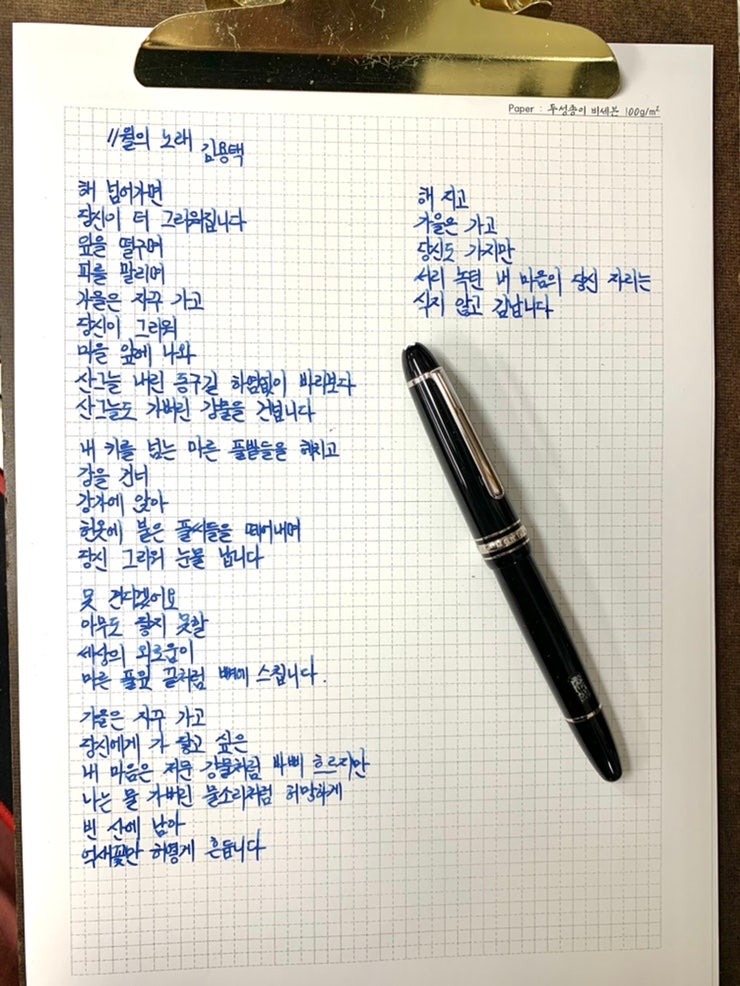 Paper : 두성종이 비세븐 100g/m²
11월의 노래
김용택
해 넘어가면
당신이 더 그리워집니다
잎을 떨구며
피를 말리며
가을은 자꾸 가고
당신이 그리워
마을 앞에 나와
산그늘 내린 동구길 하염없이 바라보다
산그늘도 가버린 강물을 건넙니다
내 키를 넘는 마른 풀밭들을 헤치고
강을 건너
강가에 앉아
헌옷에 붙은 풀씨들을 떼어내며
당신 그리워 눈물 납니다
못 견디겠어요
아무도 닿지 못할
세상의 외로움이
마른 풀잎 끝처럼 뼈에 스칩니다.
가을은 자꾸 가고
당신에게 가 닿고 싶은
내 마음은 저문 강물처럼 바삐 흐르지만
나는 물 가버린 물소리처럼 허망하게
빈 산에 남아
억새꽃만 허옇게 흔듭니다
해 지고
가을은 가고
당신도 가지만
서리 녹던 내 마음의 당신 자리는
식지 않고 김납니다